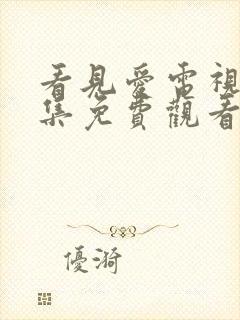 看見愛電視
集免費觀看
優漪